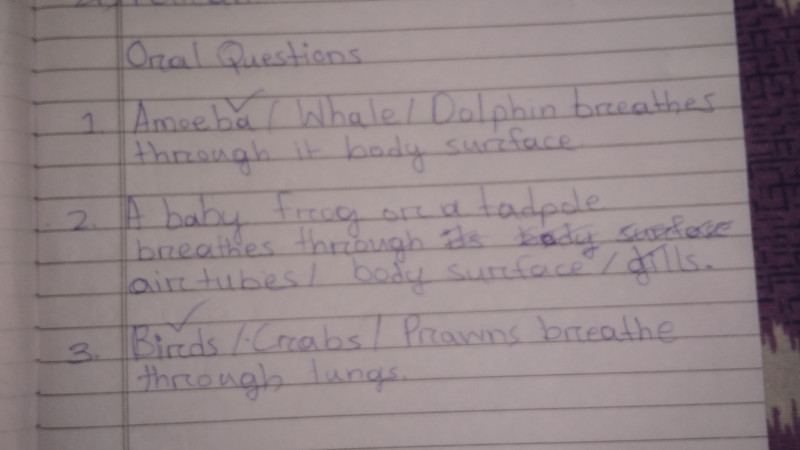 Oral Questions
1. Amoeba / Whale / Dolphin breathes
through it body surface.
2. A baby frog or a tadpole
breathes through its body surface
air tubes / body surface / gills.
3. Birds / Crabs / Prawns breathe
through lungs.